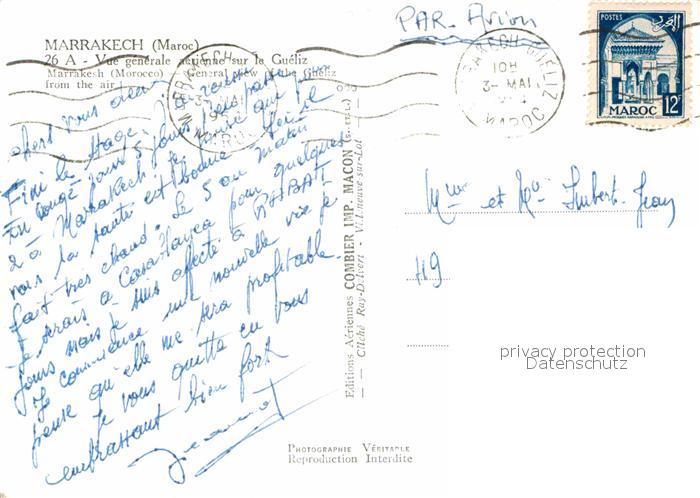 PAR Avion
MARRAKECH (Maroc)
26 A - Vue générale aérienne sur le Guéliz
Marrakesh (Morocco) - General view of the Guéliz
from the air
POSTES
MAROC 12F
MARRAKECH-GUÉLIZ
10H
3- MAI
MAROC
Chers vous deux
Fini le stage. Je
En congé pour 5 jours
à Marrakech
nous la santé est bonne
fait très chaud. Le 5 au matin
je serais à Casablanca pour quelques
jours mais je suis affecté à RABAT
Je commence une nouvelle vie je
pense qu'elle me sera profitable.
Je vous quitte en vous
embrassant bien fort
Jeannot
Mme et Mr Imbert Jean
49
Editions Aériennes COMBIER IMP. MACON (S.-&-L.)
Cliché Ray-Delvert - Villeneuve-sur-Lot
PHOTOGRAPHIE VÉRITABLE
Reproduction Interdite
privacy protection
Datenschutz